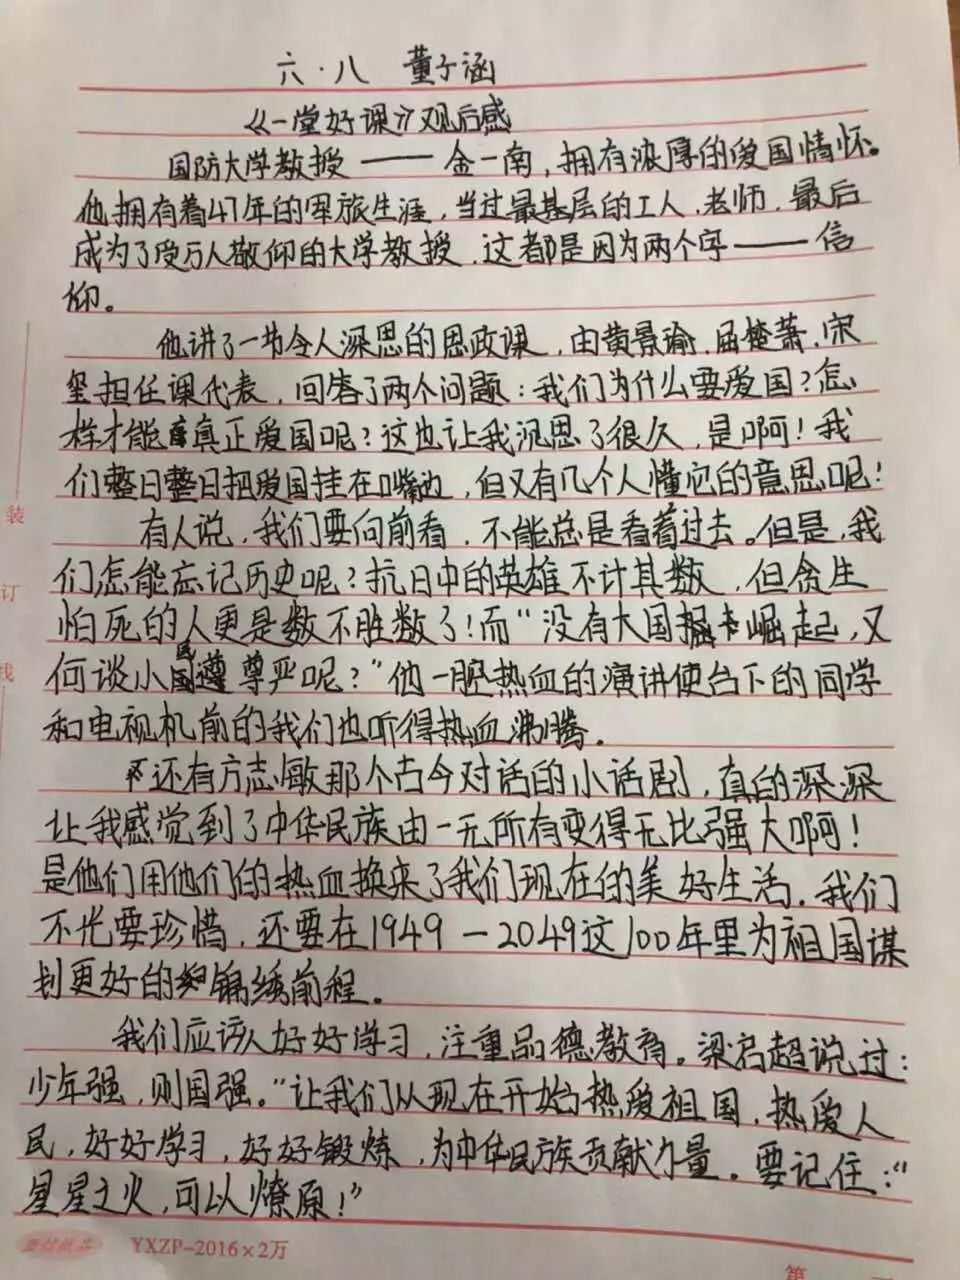 六·八 董子涵
《一堂好课》观后感
国防大学教授——金一南，拥有浓厚的爱国情怀。
他拥有着47年的军旅生涯，当过最基层的工人、老师，最后
成为了受万人敬仰的大学教授，这都是因为两个字——信
仰。
他讲了一节令人深思的思政课，由黄景瑜、屈楚萧、宋
玺担任课代表，回答了两个问题：我们为什么要爱国？怎
样才能真正爱国呢？这也让我沉思了很久，是啊！我
们整日整日把爱国挂在嘴边，但又有几个人懂它的意思呢！
有人说，我们要向前看，不能总是看着过去。但是，我
们怎能忘记历史呢？抗日中的英雄不计其数，但贪生
怕死的人更是数不胜数了！而“没有大国崛起，又
何谈小民尊严呢？”他一腔热血的演讲使台下的同学
和电视机前的我们也听得热血沸腾。
还有方志敏那个古今对话的小话剧，真的深深
让我感觉到了中华民族由一无所有变得无比强大啊！
是他们用他们的热血换来了我们现在的美好生活，我们
不光要珍惜，还要在1949—2049这100年里为祖国谋
划更好的锦绣前程。
我们应该好好学习，注重品德教育。梁启超说过：
少年强，则国强。“让我们从现在开始热爱祖国，热爱人
民，好好学习，好好锻炼，为中华民族贡献力量。要记住：“
星星之火，可以燎原！”
装
订
线
YXZP-2016×2万
第